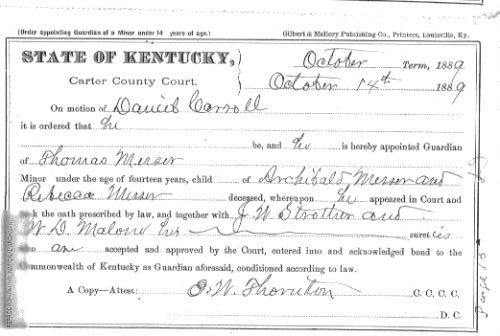 (Order appointing Guardian of a Minor under 14 years of age.) Gilbert & Mallory Publishing Co., Printers, Louisville, Ky.
STATE OF KENTUCKY, October Term, 1889
Carter County Court. October 14th 1889
On motion of Daniel Carroll
it is ordered that he
be, and he is hereby appointed Guardian
of Thomas Messer
Minor under the age of fourteen years, child of Archibald Messer and
Rebecca Messer deceased, whereupon he appeared in Court and
k the oath prescribed by law, and together with J. W. Strother and
W. D. Malone his sureties
who are accepted and approved by the Court, entered into and acknowledged bond to the
ommonwealth of Kentucky as Guardian aforesaid, conditioned according to law.
A Copy—Attest: W. Thornton C. C. C. C.
D. C.
page 13